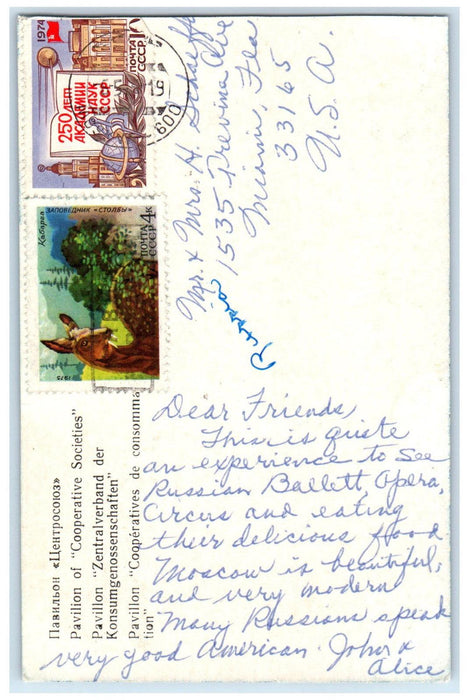 1974
ПОЧТА
СССР
250 ЛЕТ
АКАДЕМИИ
НАУК
СССР
19
600
Кабарга
ЗАПОВЕДНИК «СТОЛБЫ»
ПОЧТА 4К
СССР
1975
Mr. & Mrs. H.
1535
Miami, Fla
33165
U.S.A.
Павильон «Центросоюз»
Pavilion of "Cooperative Societies"
Pavillon "Zentralverband der
Konsumgenossenschaften"
Pavillon "Coopératives de consomma
tion"
Dear Friends,
This is quite
an experience to See
Russian Ballett, Opera,
Circus and eating
their delicious food
Moscow is beautiful,
and very modern
Many Russians speak
very good American. John &
Alice